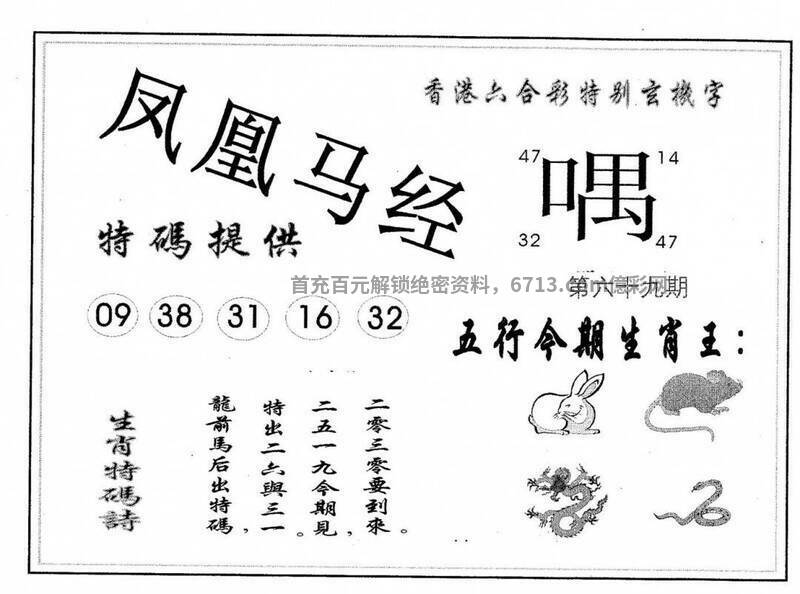 香港六合彩特别玄機字
凤凰马经
47 14
喁
32 47
特碼提供
首充百元解锁绝密资料，6713.com億彩网
第六十九期
09 38 31 16 32
五行今期生肖王：
二零三零要到來。
二五一九今期見，
特出二六與三一。
龍前馬后出特碼，
生肖特碼詩